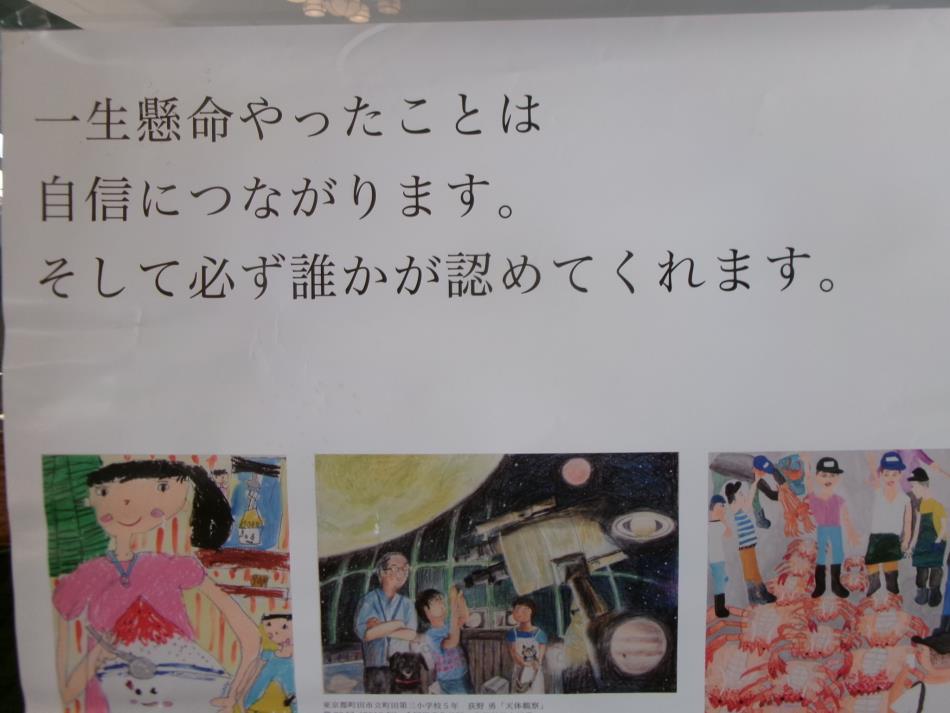 一生懸命やったことは
自信につながります。
そして必ず誰かが認めてくれます。
東京都町田市立町田第三小学校5年 荻野 勇「天体観察」